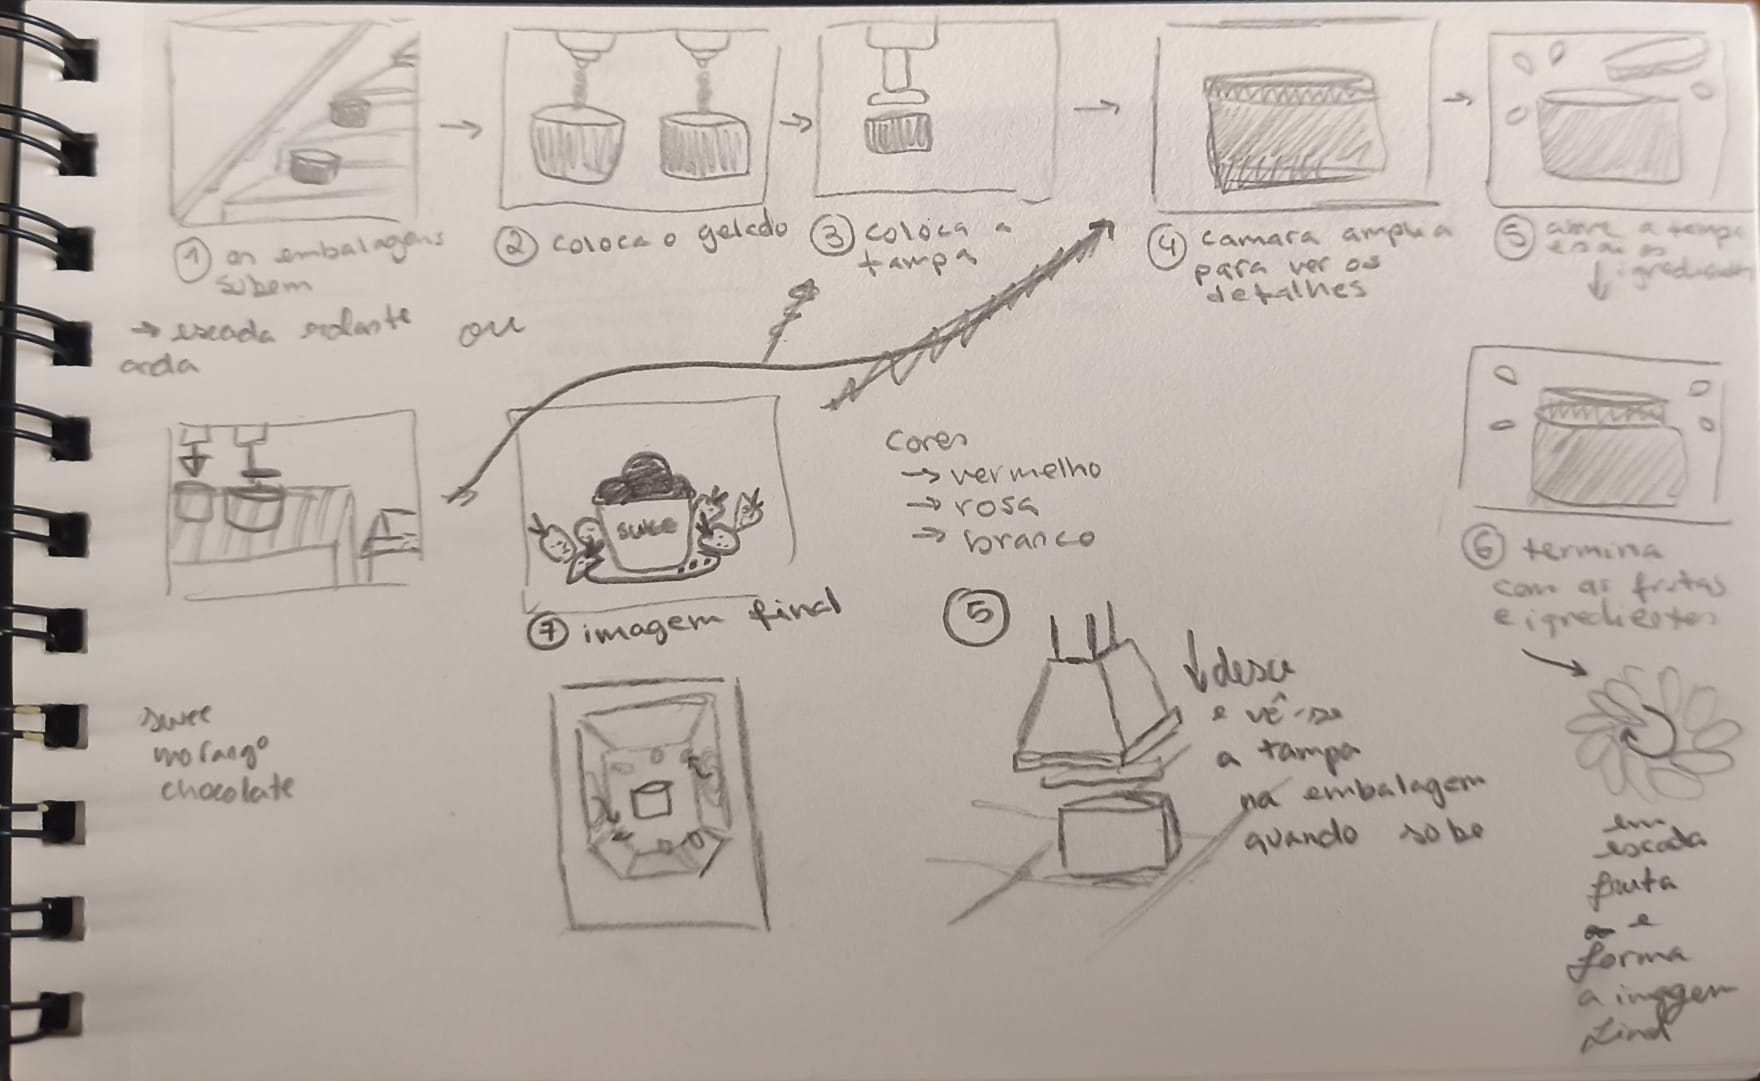 ① as embalagens
subem
→ escada rolante
ou
② coloca o gelado
③ coloca a
tampa
④ camara amplia
para ver os
detalhes
⑤ abre a tampa
e sai os
↓ igredientes
⑥ termina
com as frutas
e igredientes
em
escada
fruta
e
forma
a imagem
final
swee
⑦ imagem final
Cores
→ vermelho
→ rosa
→ branco
⑤
↓ desce
e vê-se
a tampa
na embalagem
quando sobe
swee
morango
chocolate